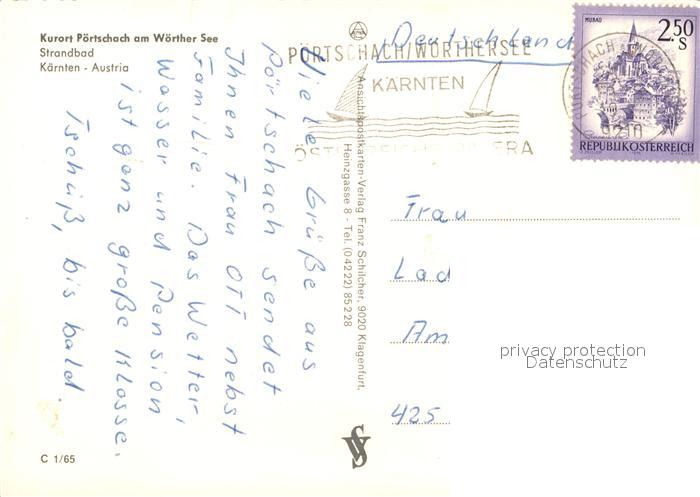 Kurort Pörtschach am Wörther See
Strandbad
Kärnten - Austria
Viele Grüße aus
Pörtschach sendet
Ihnen Frau Ott nebst
Familie. Das Wetter,
Wasser und Pension
ist ganz große Klasse.
Tschüß, bis bald.
C 1/65
Ansichtspostkarten-Verlag Franz Schilcher, 9020 Klagenfurt,
Heinzgasse 8 - Tel. (04222) 85228
Deutschland
PÖRTSCHACH/WÖRTHERSEE
KÄRNTEN
MURAU
2.50
S
9210
REPUBLIK ÖSTERREICH
Frau
Lad
Am
425
privacy protection
Datenschutz